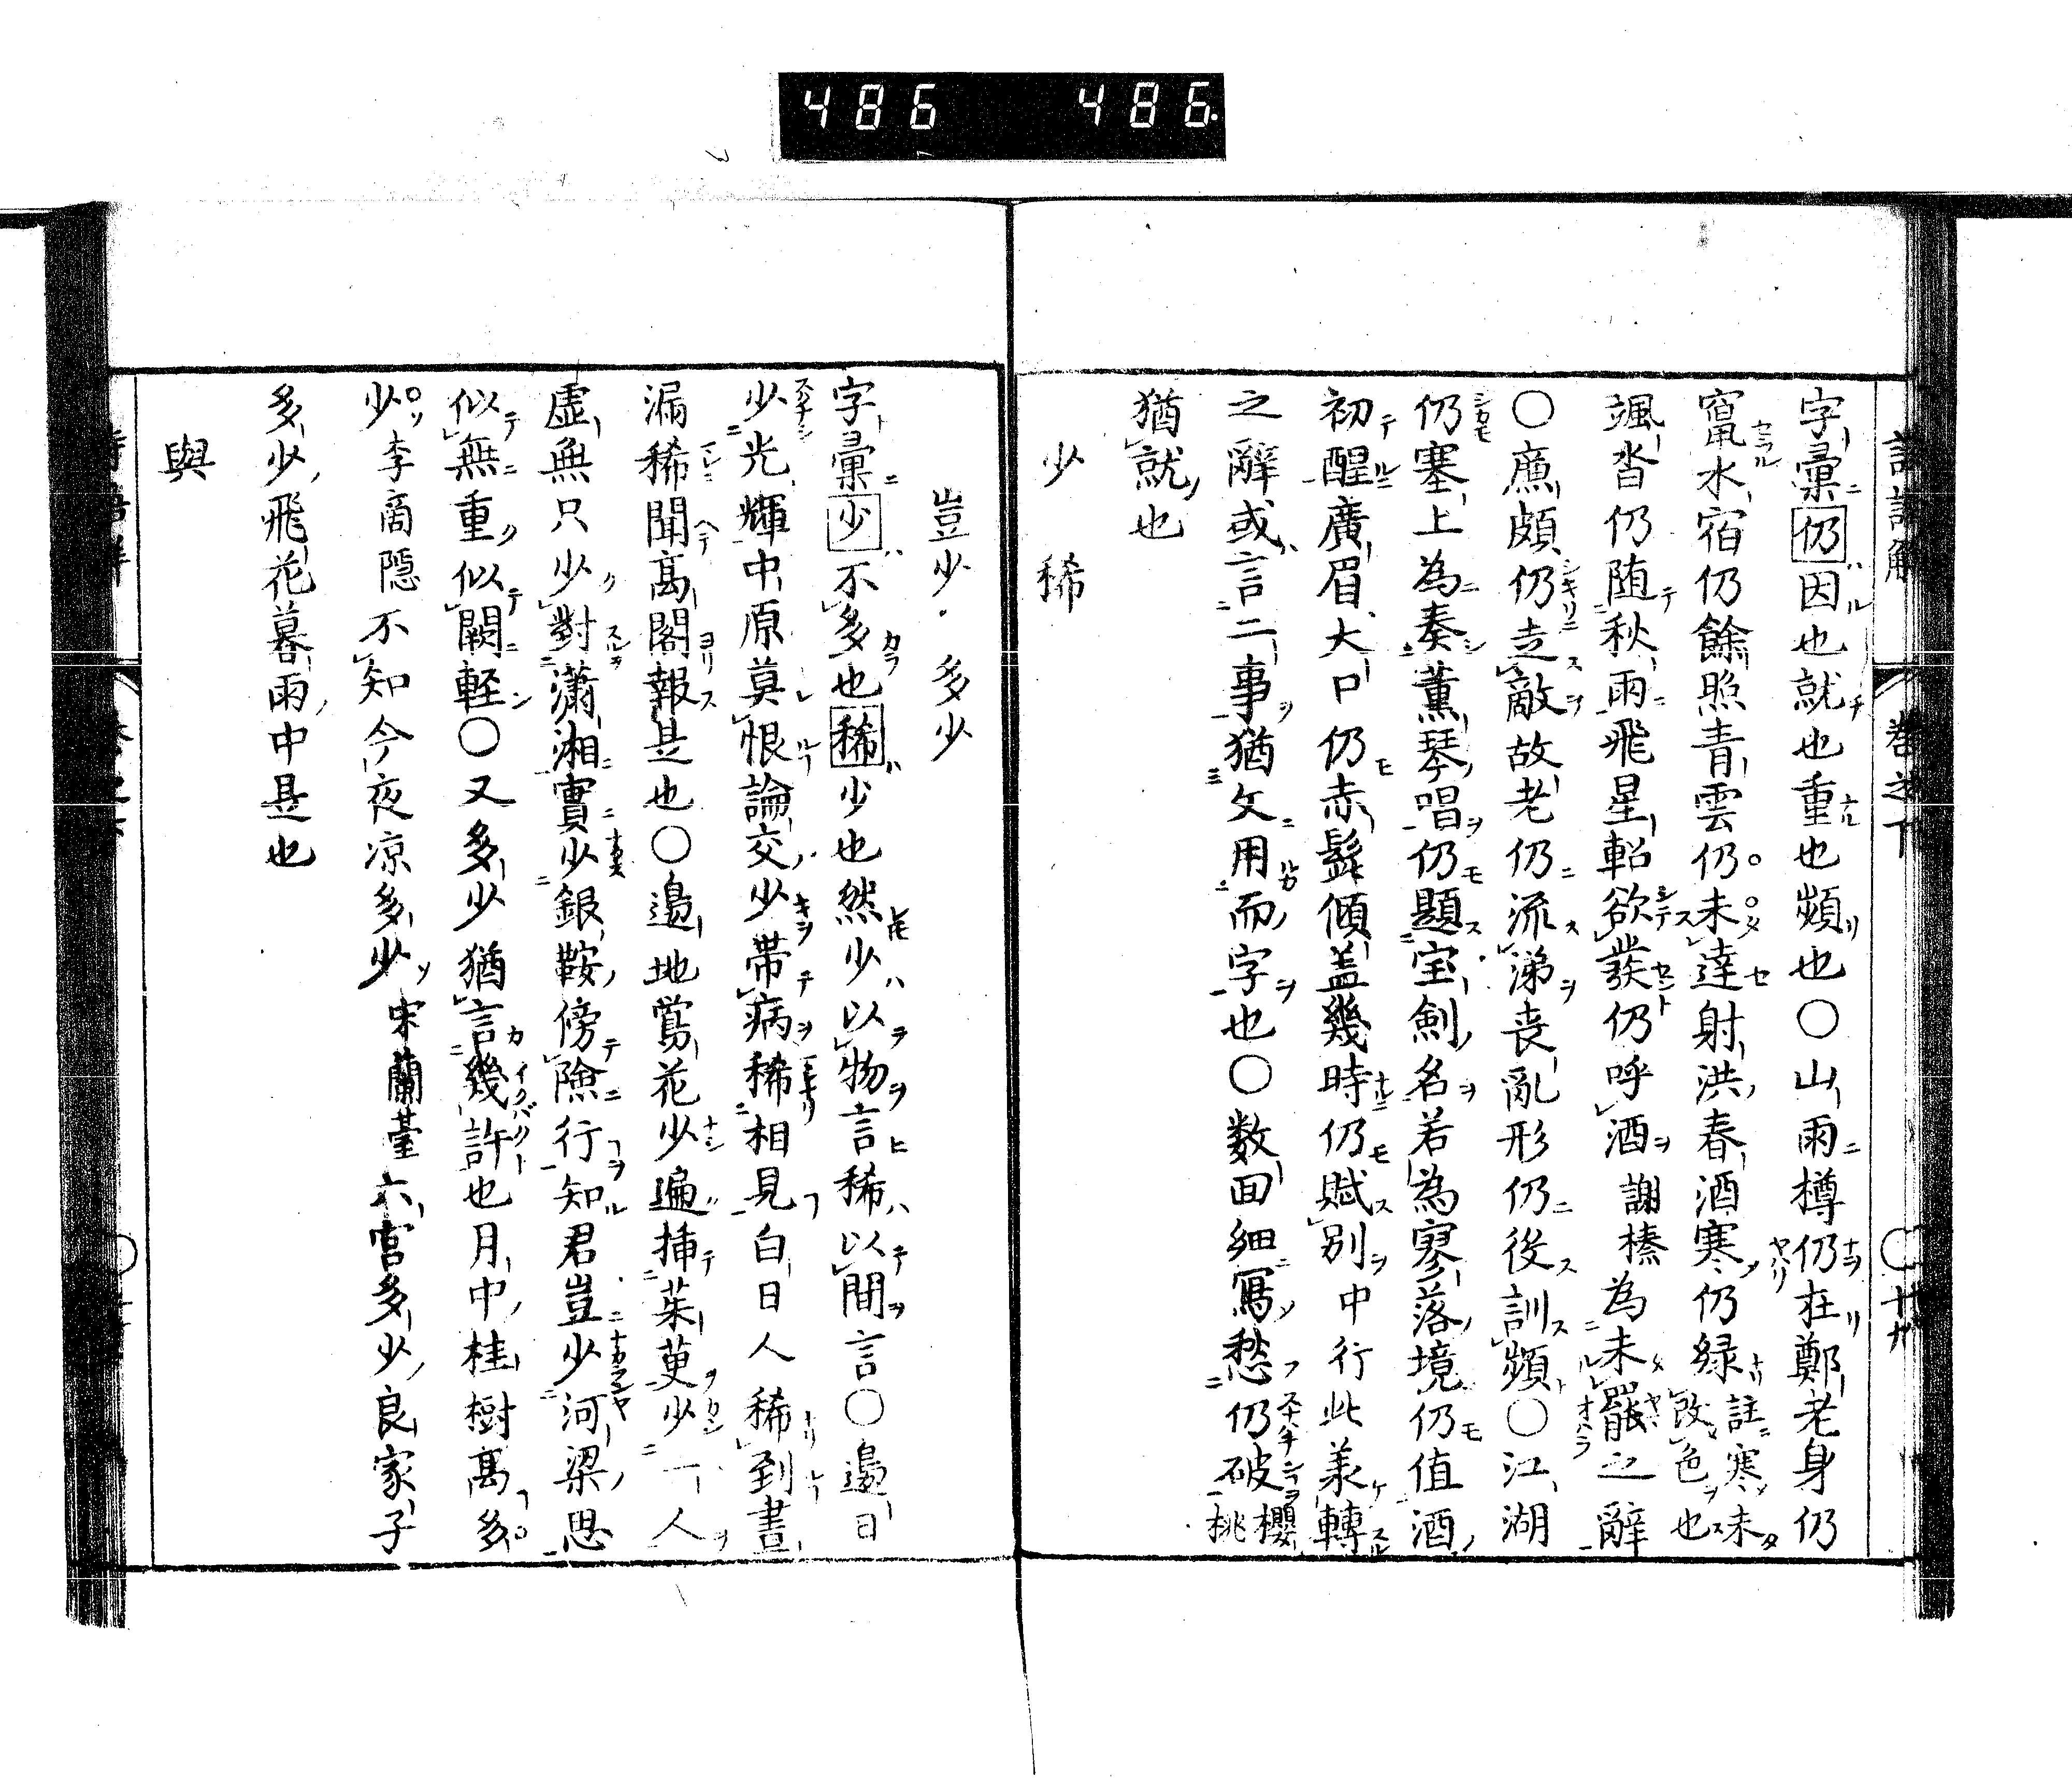 486 486.
詩語解 卷之下 ○ 十九
字彙仍因也就也重也頻也○山雨樽仍在鄭老身仍
竄水宿仍餘照青雲仍未達射洪春酒寒仍緑註寒未改色也
颯沓仍随秋雨飛星軺欲発仍呼酒謝榛為未罷之辭
○廉頗仍走敵故老仍流涕喪亂形仍役訓頻○江湖
仍塞上為奏薫琴唱仍題宝劍名若為寥落境仍值酒
初醒廣眉大口仍赤髭傾盖幾時仍賦別中行此義轉
之辭或言二事猶文用而字也○数面細寫愁仍破櫻桃
猶就也
少 稀
豈少・多少
字彙少不多也稀少也然少以物言稀以間言○邉日
少光輝中原莫恨論交少帯病稀相見白日人稀到晝
漏稀聞髙閣報是也○邉地鶯花少遍挿茱萸少一人
虚無只少對瀟湘實少銀鞍傍險行知君豈少河梁思
似無重似闕軽○又多少猶言幾許也月中桂樹髙多
少李商隠不知今夜凉多少宋蘭臺六宮多少良家子
多少飛花暮雨中是也
與